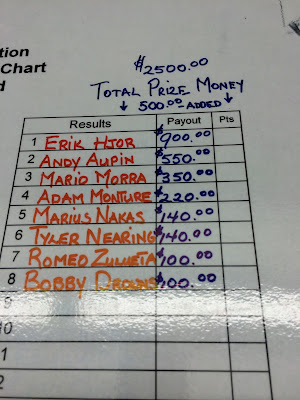 tion
Chart
d
$2500.00
TOTAL PRIZE MONEY
↓ 500.00 ADDED ↓
Results Payout Pts
1 ERIK HJOR $900.00
2 ANDY AUPIN $550.00
3 MARIO MORRA $350.00
4 ADAM MONTURE $220.00
5 MARIUS NAKAS $140.00
6 TYLER NEARING $140.00
7 ROMEO ZULUETA $100.00
8 BOBBY $100.00
9
10
1
2